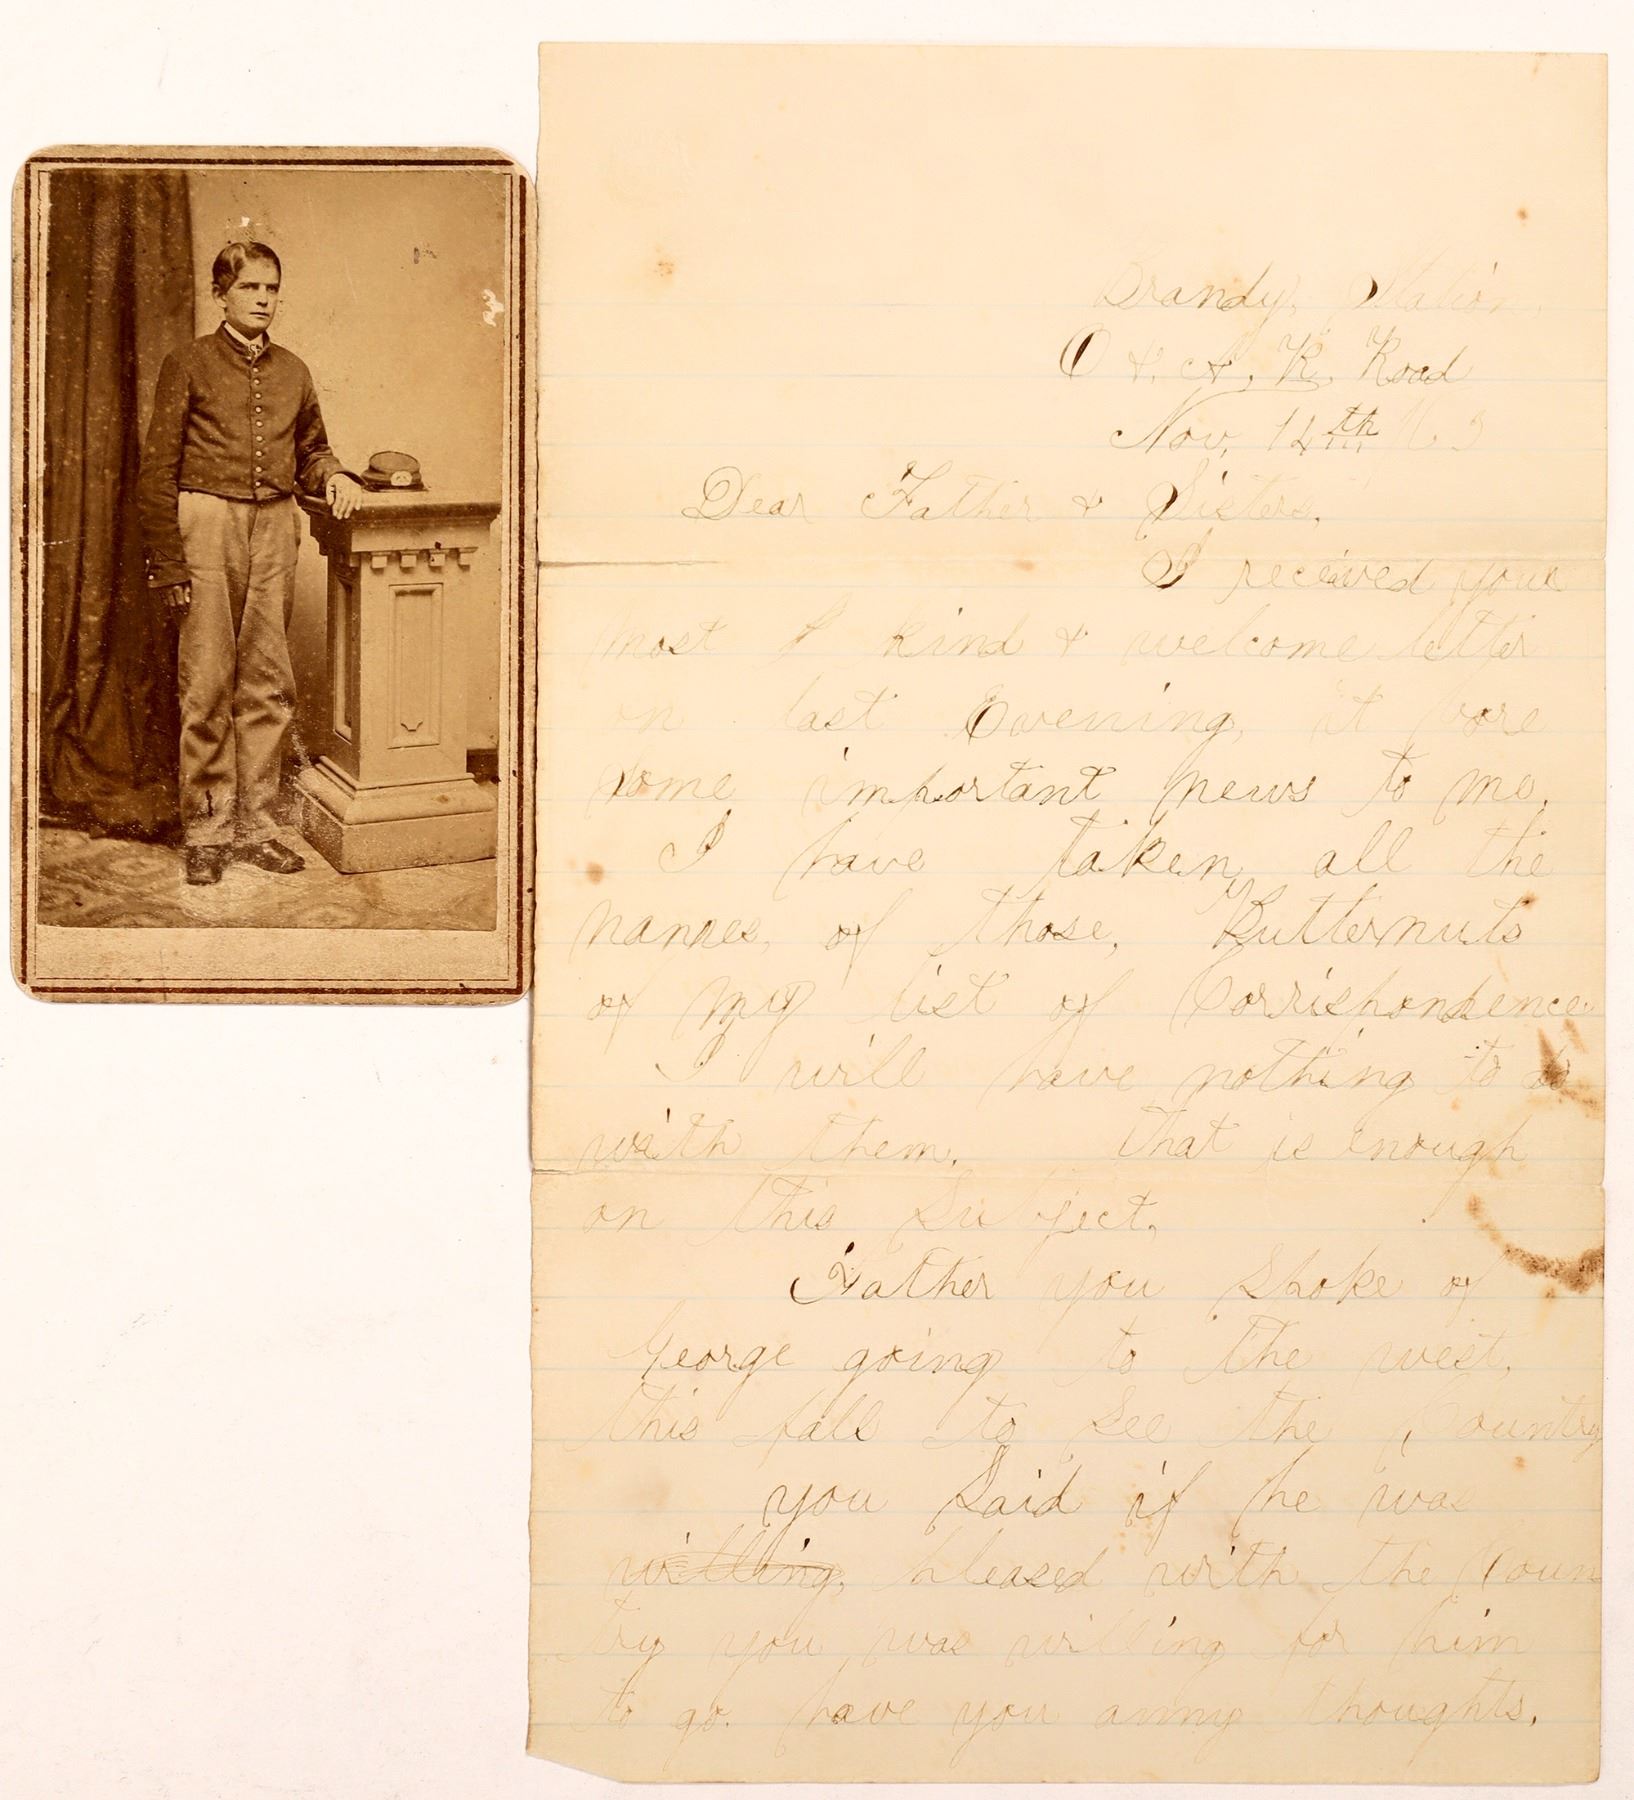 Brandy, Station,
O & A, R, Road
Nov. 14th
Dear Father & Sisters,
I received your
most kind & welcome letter
on last Evening, it bore
some important news to me,
I have taken all the
names, of those, Butternuts
of my list of Corrispondence
I will have nothing to do
with them. that is enough
on this Subject,
Father you spoke of
George going to the west,
this fall to see the Country
you said if he was
willing, pleased with the Coun
try you was willing for him
to go. have you anny thoughts,